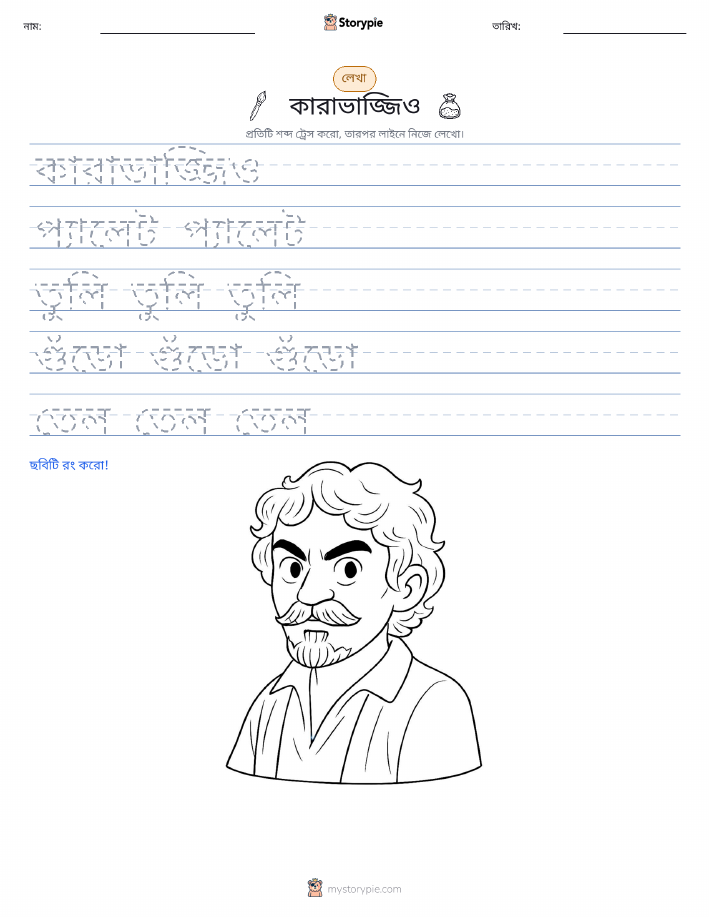 নাম:
Storypie
তারিখ:
লেখা
কারাভাজ্জিও
প্রতিটি শব্দ ট্রেস করো, তারপর লাইনে নিজে লেখো।
কারাভাজ্জিও
প্যালেট প্যালেট
তুলি তুলি তুলি
গুঁড়ো গুঁড়ো গুঁড়ো
তেল তেল তেল
ছবিটি রং করো!
mystorypie.com